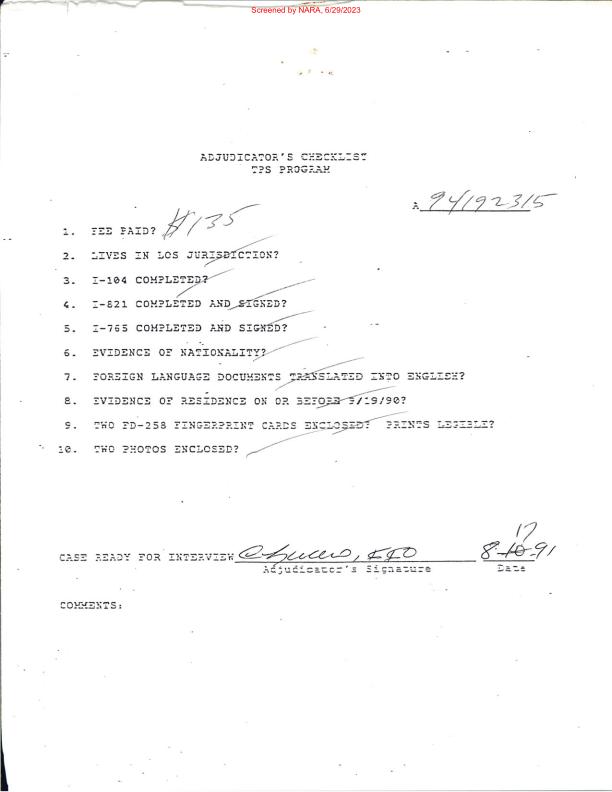 Screened by NARA, 6/29/2023
ADJUDICATOR'S CHECKLIST
TPS PROGRAM
A 94192315
1. FEE PAID? $135
2. LIVES IN LOS JURISDICTION?
3. I-104 COMPLETED?
4. I-821 COMPLETED AND SIGNED?
5. I-765 COMPLETED AND SIGNED?
6. EVIDENCE OF NATIONALITY?
7. FOREIGN LANGUAGE DOCUMENTS TRANSLATED INTO ENGLISH?
8. EVIDENCE OF RESIDENCE ON OR BEFORE 9/19/90?
9. TWO FD-258 FINGERPRINT CARDS ENCLOSED? PRINTS LEGIBLE?
10. TWO PHOTOS ENCLOSED?
17
CASE READY FOR INTERVIEW 8-10-91
Adjudicator's Signature Date
COMMENTS: